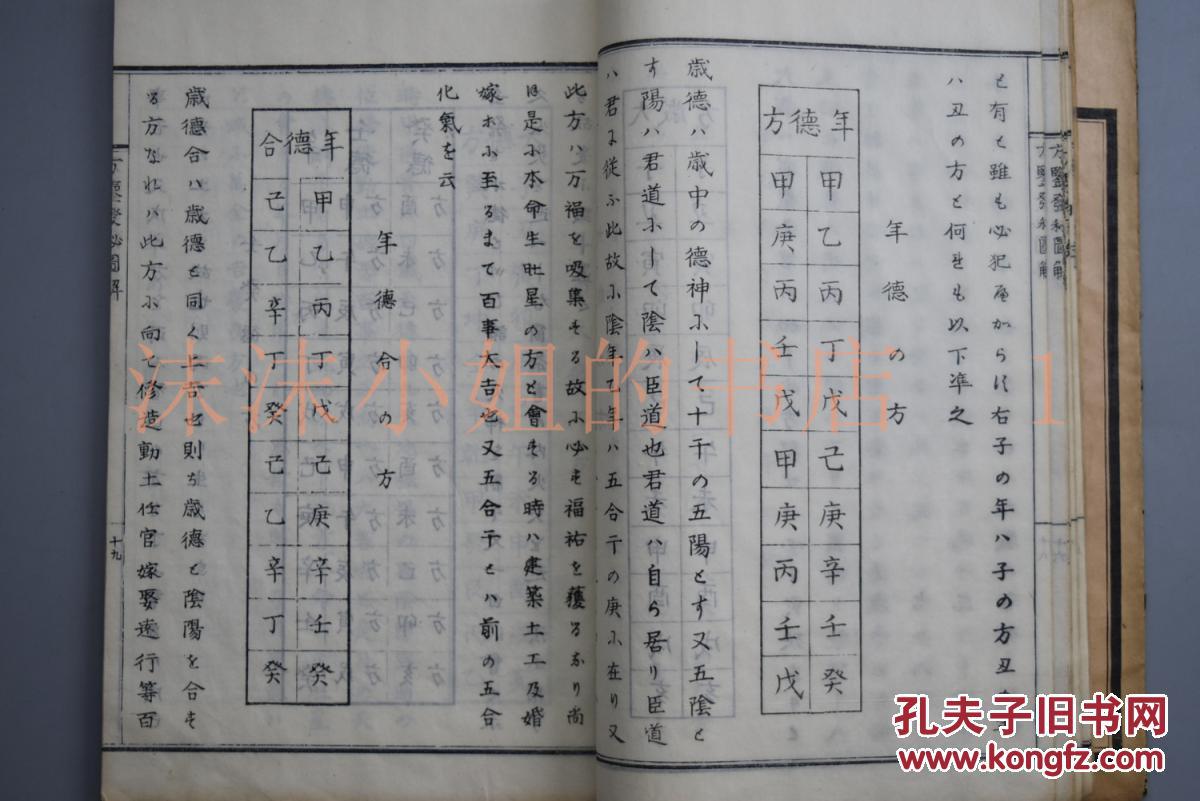 と有と雖も必犯庵からに右子の年ハ子の方丑
ハ丑の方と何も以下準之
年德の方
年 甲 乙 丙 丁 戊 己 庚 辛 壬 癸
德方 甲 庚 丙 壬 戊 甲 庚 丙 壬 戊
歳德ハ歳中の德神ふして十干の五陽とす又五陰と
す陽ハ君道ふして陰ハ臣道也君道ハ自ら居り臣道
ハ君に從ふ此故ふ陰年乙年ハ五合干の庚ふ在り又
此方ハ万福を吸集する故ふ必も福祐を獲るなり尚
ほ是ふ本命生旺星の方と會する時ハ建築土工及婚
嫁ホふ至るまで百事大吉也又五合干とハ前の五合
化氣を云
年德合の方
年 甲 乙 丙 丁 戊 己 庚 辛 壬 癸
德合 己 乙 辛 丁 癸 己 乙 辛 丁 癸
歳德合ハ歳德と同く上吉也則ち歳德と陰陽を合す
る方なれハ此方ふ向て修造動土任官嫁娶遠行等百
方鑒發秘圖解
十九
方鑒發秘圖解
沫沫小姐的书店 1
孔夫子旧书网
www.kongfz.com